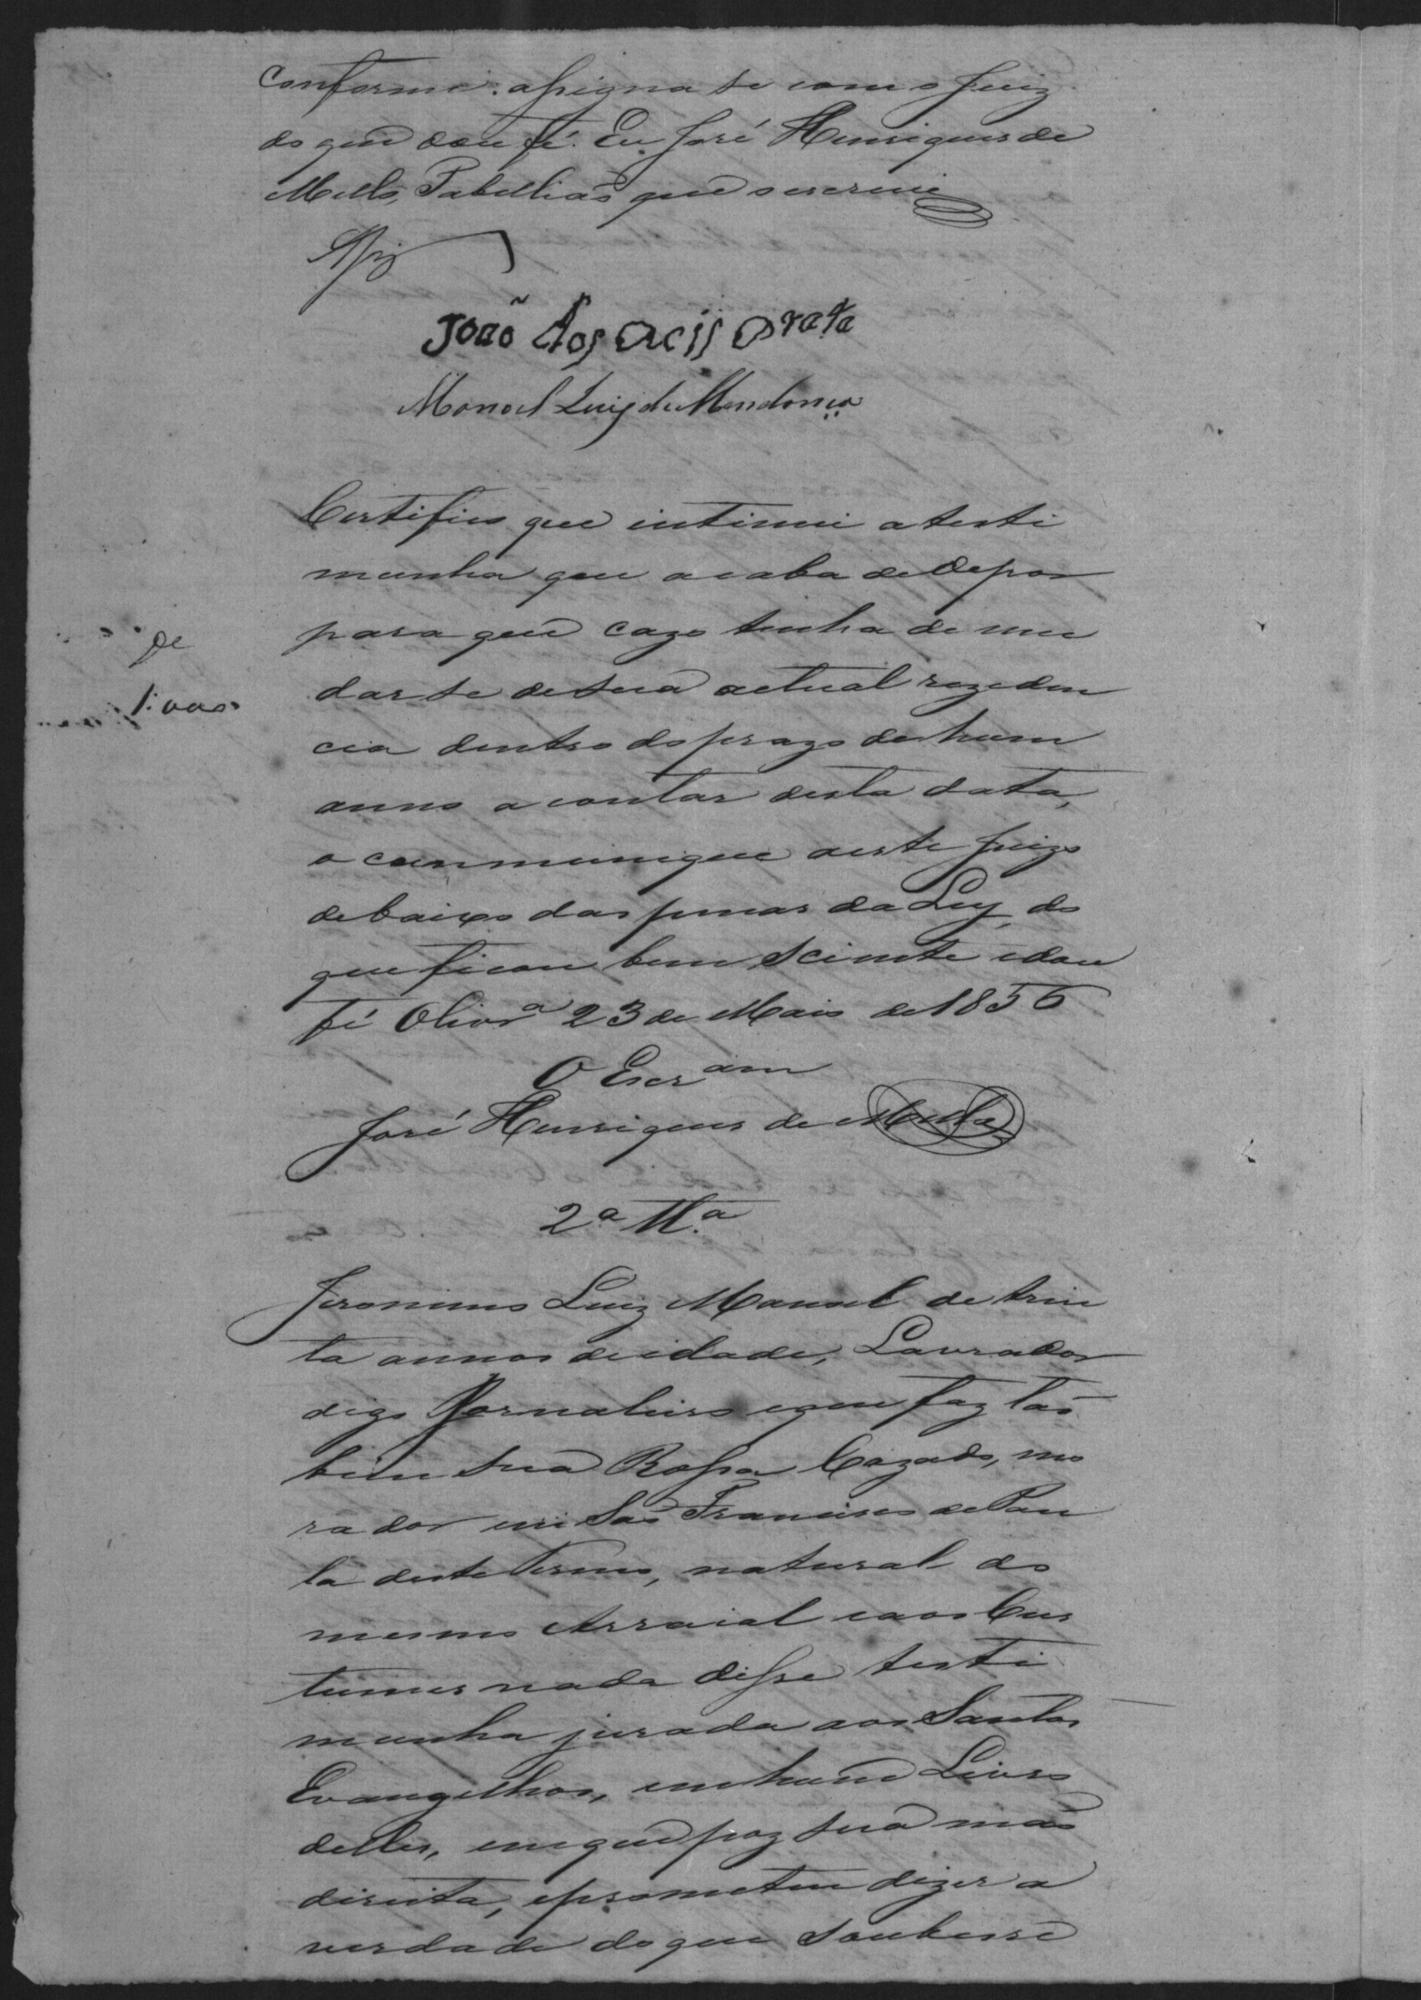 conforme. assigna se com o Juiz
do que dou fé. Eu José Henriques de
Mello, Tabellião que o escrevi
João dos Reis Prata
Manoel Luiz de Mendonça
Certifico que intimei a teste
munha que acaba de depor
para que cazo tenha de mu
dar se de sua actual rezeden
cia dentro do prazo de hum
anno a contar desta data,
o communique a este Juizo
debaixo das penas da Ley, do
que ficou bem sciente e dou
fé Olivrª 23 de Maio de 1856
O Escram
José Henriques de Mello
de
1:000
2ª Tª
Jeronimo Luiz Manoel de trin
ta annos de idade, Lavrador
digo Jornaleiro e que faz tão
bem sua Rossa Cazado, mo
rador em São Francisco de Pau
la deste Termo, natural do
mesmo Arraial e aos Cus
tumes nada disse teste
munha jurada aos Santos
Evangelhos, em hum Livro
delles, em que poz sua mão
direita, e prometeu dizer a
verdade do que soubesse